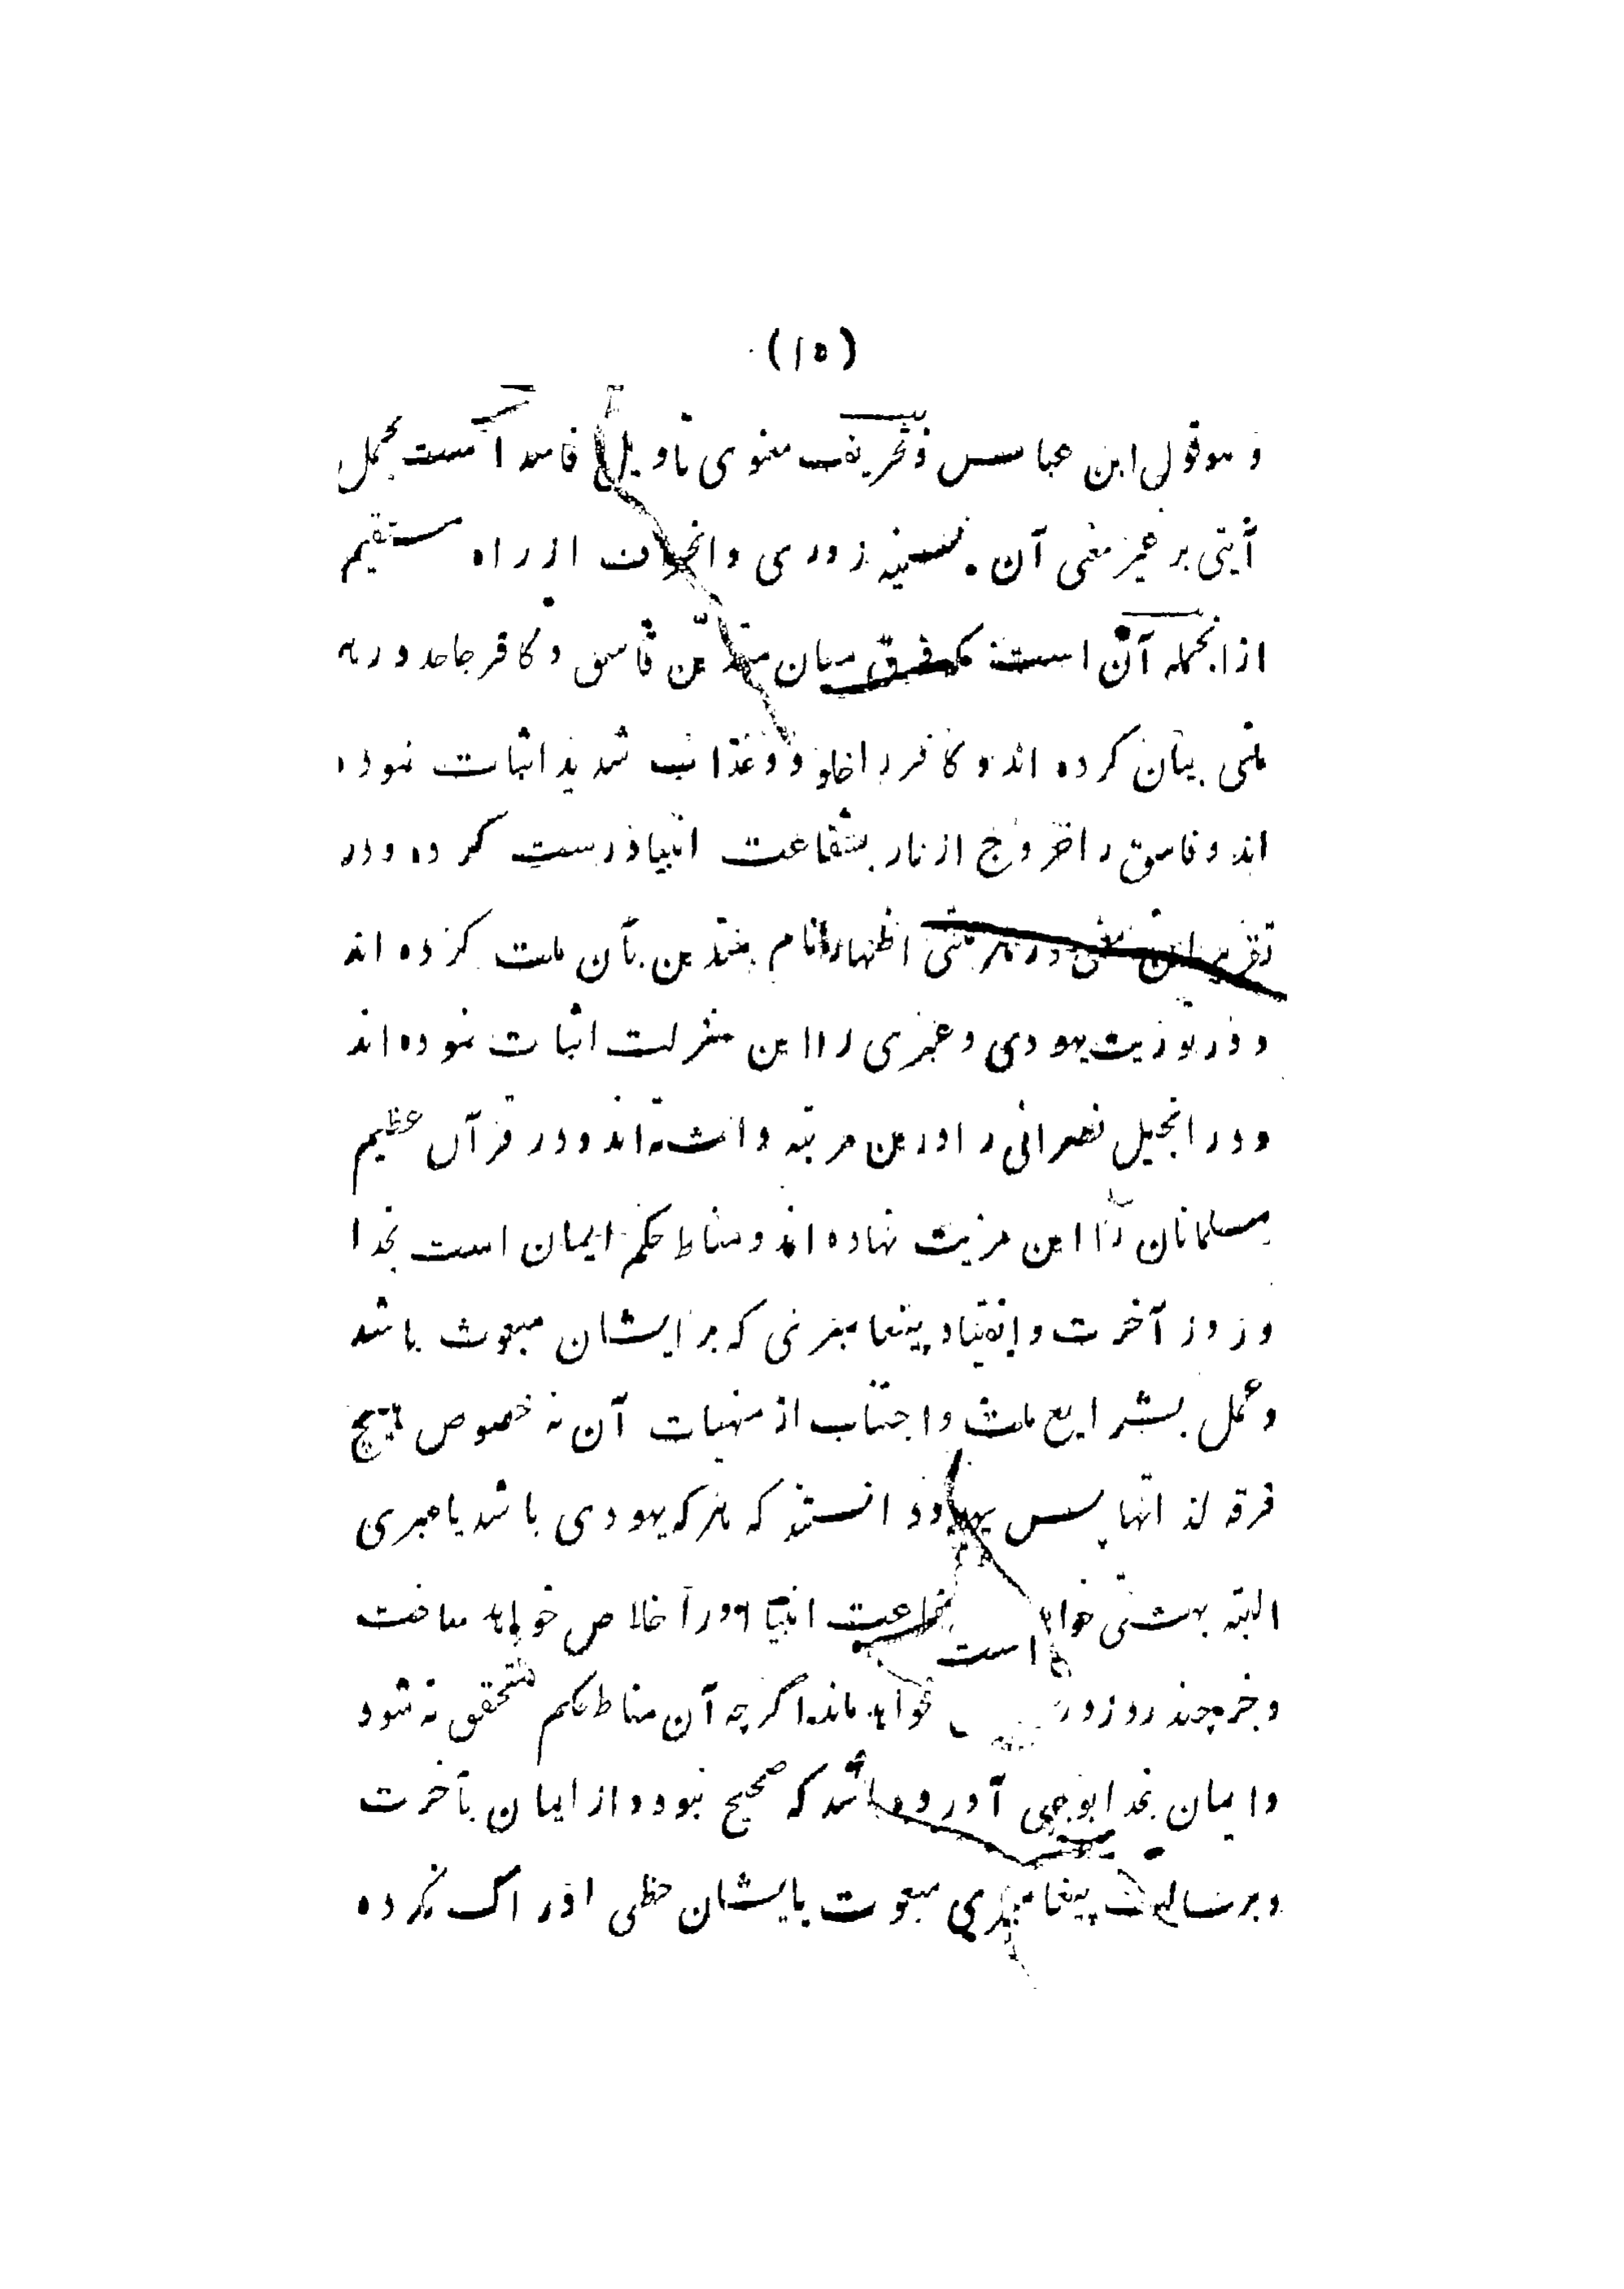 (١٥)
و هو قول ابن عباس و تحریف معنوی تاویل فاسد است بحمل
آیتی بر غیر معنی آن بسینه زوری و انحراف از راه مستقیم
از انجمله آن است که فرق میان متدین فاسق و کافر جاحد در هر
ملتی بیان کرده اند و کافر را خلود و عذاب شدید اثبات نموده
اند و فاسق را خروج از نار بشفاعت انبیا درست کرده و در
تقریر این معنی در هر ملتی اظهار نام متدین بآن ملت کرده اند
و در توریت یهودی و عبری را این منزلت اثبات نموده اند
و در انجیل نصرانی را درین مرتبه داشته اند و در قرآن عظیم
مسلمانان را این مزیت نهاده اند و مناط حکم ایمان است بخدا
و روز آخرت و انقیاد پیغامبری که بر ایشان مبعوث باشد
و عمل بشرایع ملت و اجتناب از منهیات آن نه خصوص هیچ
فرقه از انها پس یهود دانستند که هر که یهودی باشد یا عبری
البته بهشتی خواهد است شفاعت انبیا او را خلاص خواهد ساخت
و جز چند روز در خواهد ماند اگر چه آن مناط حکم متحقق نه شود
و ایمان بخدا بوجهی آورده باشد که صحیح نبود و از ایمان بآخرت
و برسالت پیغامبری مبعوث بایشان حظی ادراک نکرده